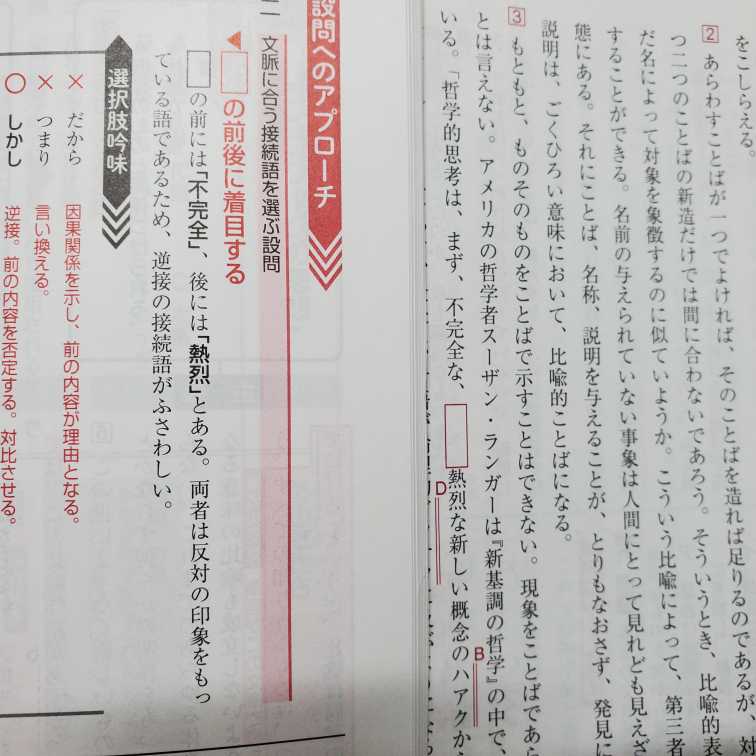 をこしらえる。
2 あらわすことばが一つでよければ、そのことばを造れば足りるのであるが、対
つ二つのことばの新造だけでは間に合わないであろう。そういうとき、比喩的表
だ名によって対象を象徴するのに似ていようか。こういう比喩によって、第三者
することができる。名前の与えられていない事象は人間にとって見れども見えざ
態にある。それにことば、名称、説明を与えることが、とりもなおさず、発見に
説明は、ごくひろい意味において、比喩的ことばになる。
3 もともと、ものそのものをことばで示すことはできない。現象をことばであら
とは言えない。アメリカの哲学者スーザン・ランガーは『新基調の哲学』の中で、
B
いる。「哲学的思考は、まず、不完全な、□熱烈な新しい概念のハアクか
D
設問へのアプローチ
二 文脈に合う接続語を選ぶ設問
□の前後に着目する
□の前には「不完全」、後には「熱烈」とある。両者は反対の印象をもっ
ている語であるため、逆接の接続語がふさわしい。
選択肢吟味
× だから 因果関係を示し、前の内容が理由となる。
× つまり 言い換える。
○ しかし 逆接。前の内容を否定する。対比させる。